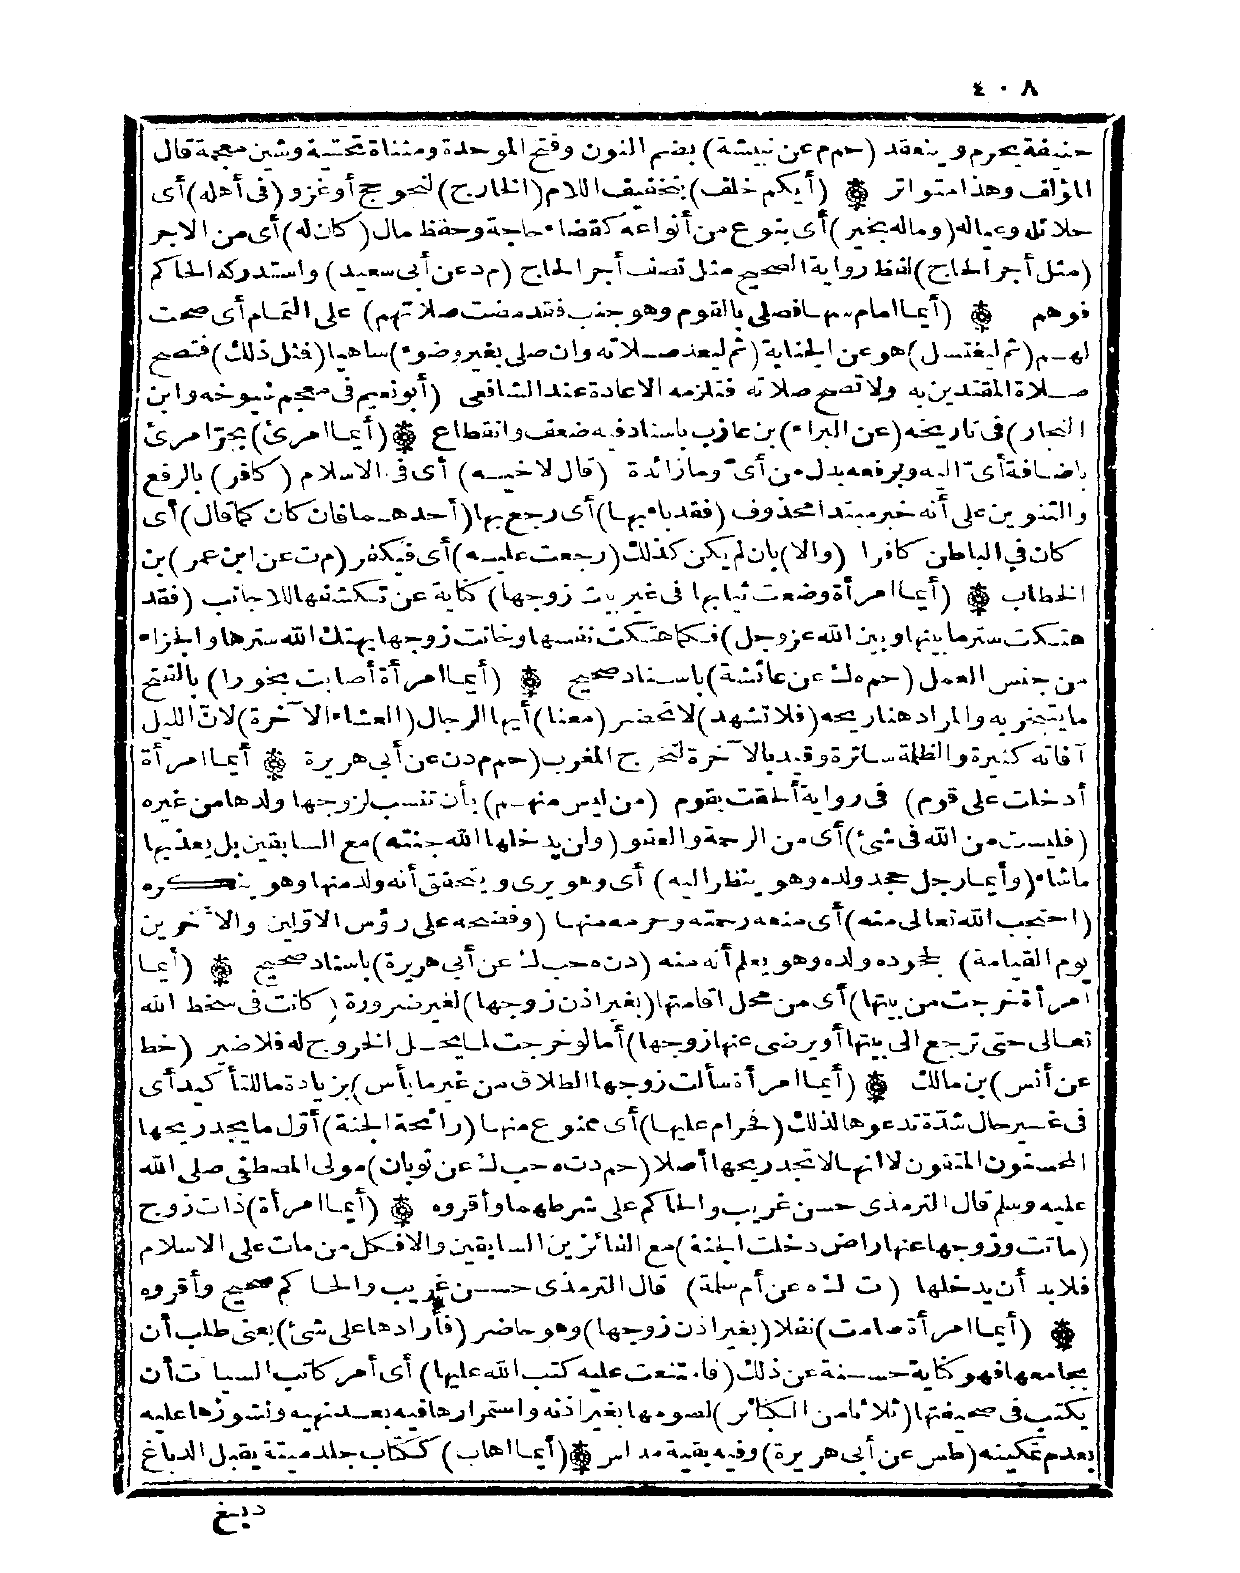 ٤٠٨
حنيفة يحرم وينعقد (حم م عن نبيشة) بضم النون وفتح الموحدة ومثناة تحتية وشين معجمة قال
المؤلف وهذا متواتر (أيكم خلف) بتخفيف اللام (الخارج) لنحو حج أو غزو (فى أهله) أى
حلائله وعياله (وماله بخير) أى بنوع من أنواعه كقضاء حاجة وحفظ مال (كان له) أى من الاجر
(مثل أجر الحاج) لفظ رواية الصحيح مثل نصف أجر الحاج (م د عن أبى سعيد) واستدركه الحاكم
فوهم (أيما امام سها فصلى بالقوم وهو جنب فقد مضت صلاتهم) على التمام أى صحت
لهم (ثم ليغتسل) هو عن الجنابة (ثم ليعد صلاته وان صلى بغير وضوء) ساهيا (فمثل ذلك) فتصح
صلاة المقتدين به ولا تصح صلاته فتلزمه الاعادة عند الشافعى (أبو نعيم فى معجم شيوخه وابن
النجار) فى تاريخه (عن البراء) بن عازب باسناد فيه ضعف وانقطاع (أيما امرئ) بجرّ امرئ
باضافة أىّ اليه وبرفعه بدل من أىّ وما زائدة (قال لاخيه) أى فى الاسلام (كافر) بالرفع
والتنوين على أنه خبر مبتدا محذوف (فقد باء بها) أى رجع بها (أحدهما فان كان كما قال) أى
كان فى الباطن كافرا (والا) بان لم يكن كذلك (رجعت عليه) أى فيكفر (م ت عن ابن عمر) بن
الخطاب (أيما امرأة وضعت ثيابها فى غير بيت زوجها) كناية عن تكشفها للاجانب (فقد
هتكت ستر ما بينها وبين الله عز وجل) فكما هتكت نفسها وخانت زوجها يهتك الله سترها والجزاء
من جنس العمل (حم ه ك عن عائشة) باسناد صحيح (أيما امرأة أصابت بخورا) بالفتح
ما يتبخر به والمراد هنا ريحه (فلا تشهد) لا تحضر (معنا) أيها الرجال (العشاء الآخرة) لانّ الليل
آفاته كثيرة والظلمة ساترة وقيد بالآخرة لتخرج المغرب (حم م د ن عن أبى هريرة أيما امرأة
أدخلت على قوم) فى رواية ألحقت بقوم (من ليس منهم) بأن تنسب لزوجها ولدها من غيره
(فليست من الله فى شئ) أى من الرحمة والعفو (ولن يدخلها الله جنته) مع السابقين بل يعذبها
ماشاء (وأيما رجل جحد ولده وهو ينظر اليه) أى وهو يرى ويتحقق أنه ولد منها وهو ينكره
(احتجب الله تعالى منه) أى منعه رحمته وحرمه منها (وفضحه على رؤس الاوّلين والآخرين
يوم القيامة) لجوده ولده وهو يعلم أنه منه (د ن ه حب ك عن أبى هريرة) باسناد صحيح (أيما
امرأة خرجت من بيتها) أى من محل اقامتها (بغير اذن زوجها) لغير ضرورة (كانت فى سخط الله
تعالى حتى ترجع الى بيتها أو يرضى عنها زوجها) أما لو خرجت لما يحل الخروج له فلا ضير (خط
عن أنس) بن مالك (أيما امرأة سألت زوجها الطلاق من غير ما بأس) بزيادة ما للتأكيد أى
فى غير حال شدّة تدعوها لذلك (فحرام عليها) أى ممنوع منها (رائحة الجنة) أوّل ما يجد ريحها
المحسنون المتقون لا انها لا تجد ريحها أصلا (حم د ت ه حب ك عن ثوبان) مولى المصطفى صلى الله
عليه وسلم قال الترمذى حسن غريب والحاكم على شرطهما وأقروه (أيما امرأة) ذات زوج
(ماتت وزوجها عنها راض دخلت الجنة) مع الفائزين السابقين والا فكل من مات على الاسلام
فلابد أن يدخلها (ت ك ه عن أم سلمة) قال الترمذى حسن غريب والحاكم صحيح وأقروه
(أيما امرأة صامت) نفلا (بغير اذن زوجها) وهو حاضر (فأرادها على شئ) يعنى طلب أن
يجامعها فهو كناية حسنة عن ذلك (فامتنعت عليه كتب الله عليها) أى أمر كاتب السيات أن
يكتب فى صحيفتها (ثلاثا من الكبائر) لصومها بغير اذنه واستمرارها فيه بعد نهيه ونشوزها عليه
بعدم تمكينه (طس عن أبى هريرة) وفيه بقية مدلس (أيما اهاب) ككتاب جلد ميتة يقبل الدباغ
دبغ